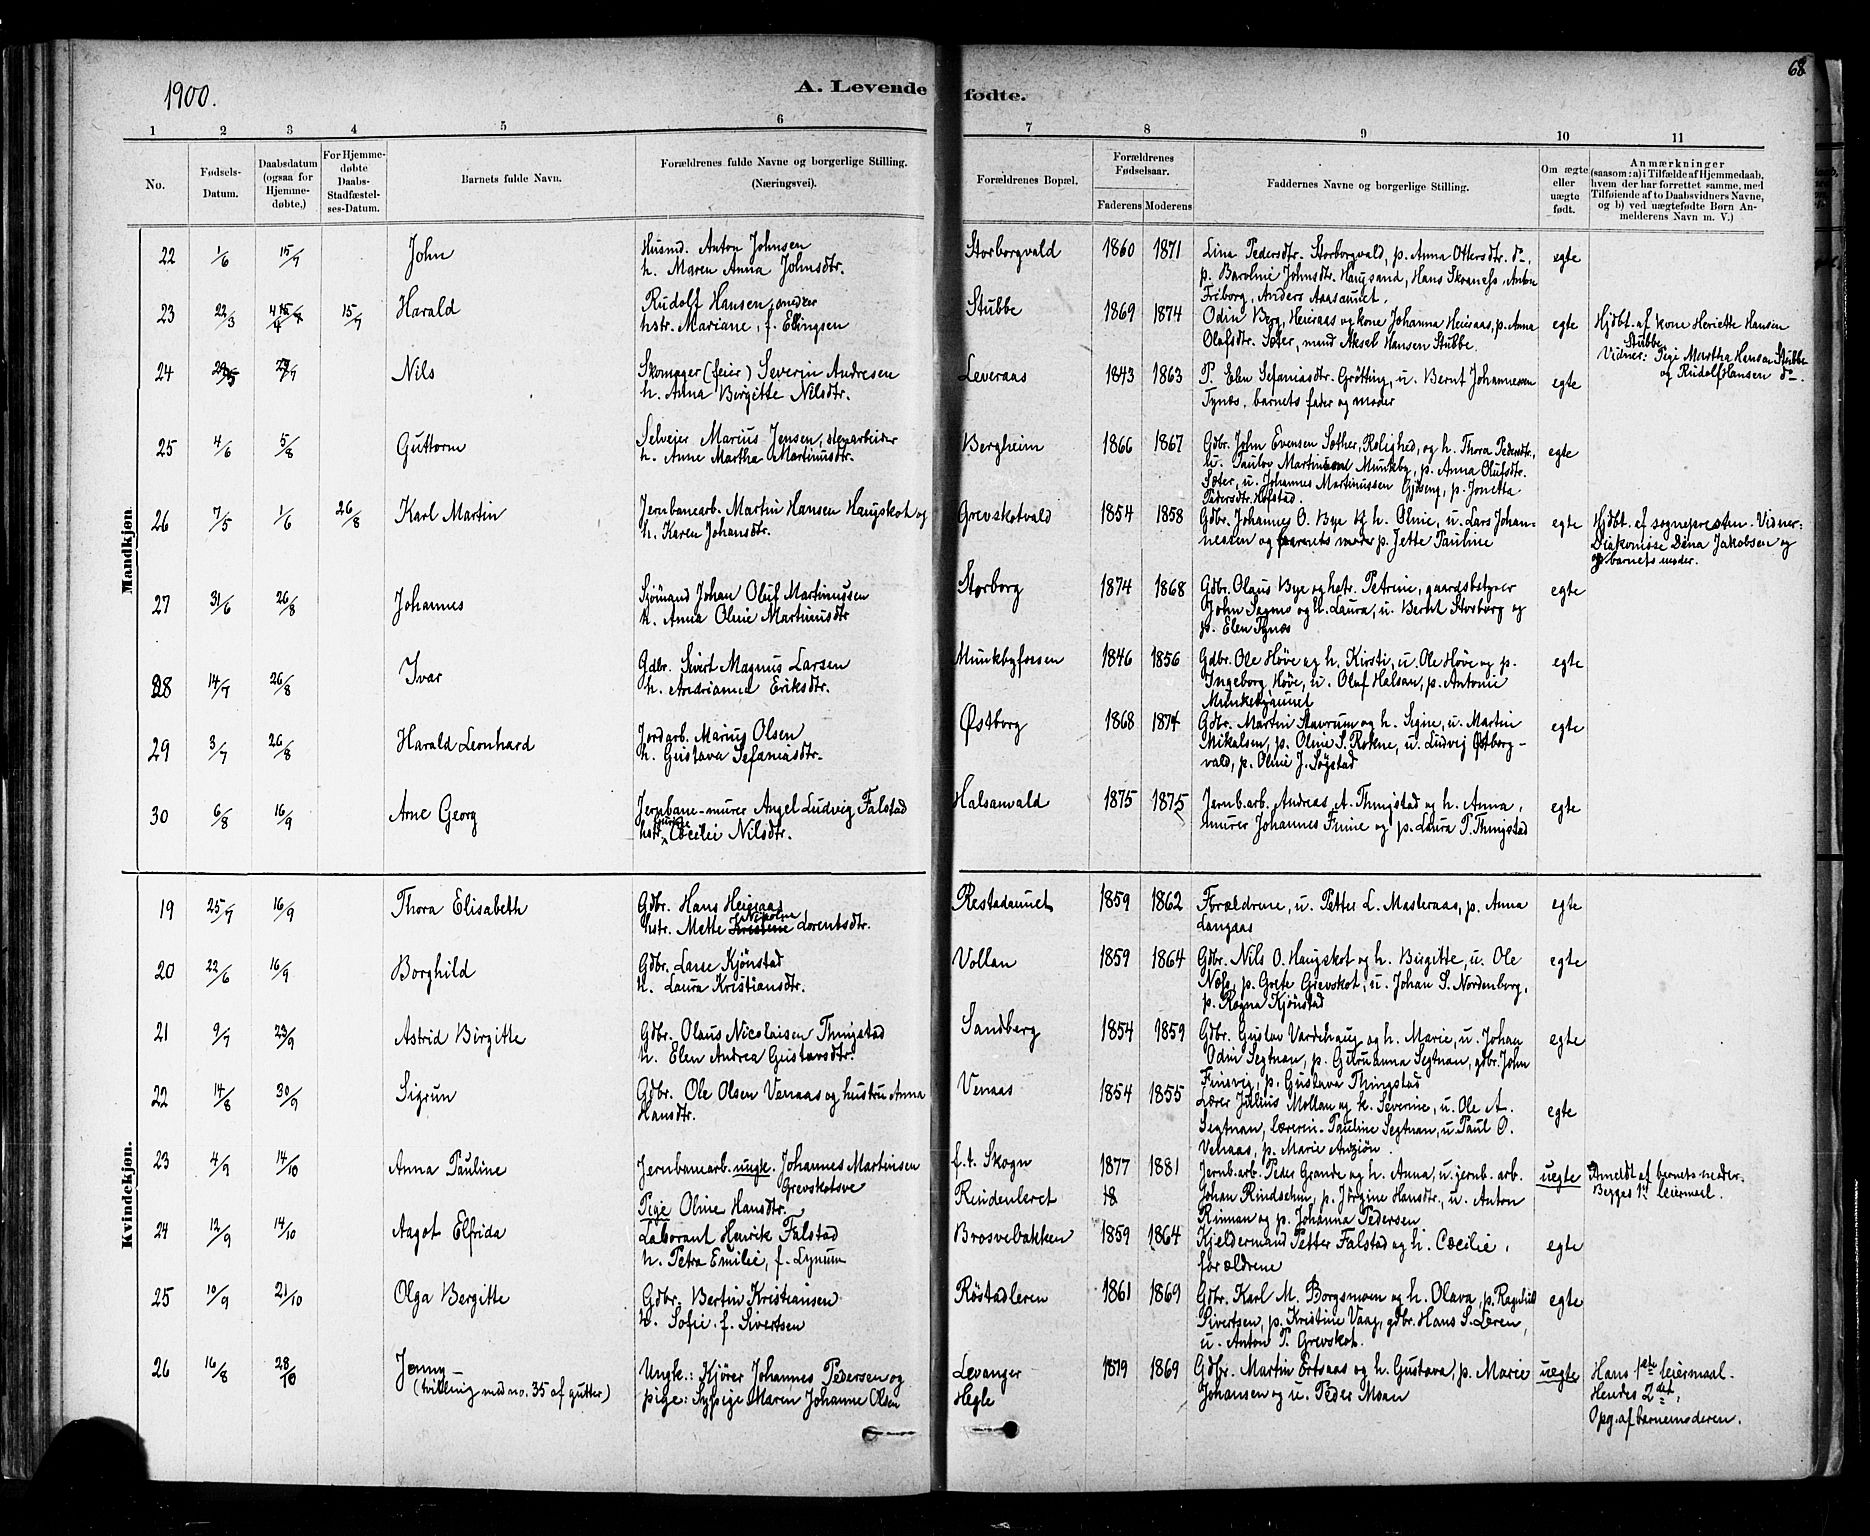 1900.
A. Levende fødte.
68
1 2 3 4 5 6 7 8 9 10 11
No.
Fødsels-Datum.
Daabsdatum (ogsaa for Hjemme-døbte.)
For Hjemme-døbte Daabs-Stadfæstel-ses-Datum.
Barnets fulde Navn.
Forældrenes fulde Navne og borgerlige Stilling.
(Næringsvei).
Forældrenes Bopæl.
Forældrenes Fødselsaar.
Faderens Moderens
Faddernes Navne og borgerlige Stilling.
Om ægte eller uægte født.
Anmærkninger
(saasom: a) i Tilfælde af Hjemmedaab, hvem der har forrettet samme, med Tilføiende af to Daabsvidners Navne, og b) ved uægtefødte Børn Anmelderens Navn m. V.)
Mandkjøn.
22 1/6 15/7 John
Husmd. Anton Johnsen
h. Maren Anna Johnsdtr.
Storborgvald 1860 1871
Lina Pedersdtr. Storborgvald, p. Anna Ottersdtr. do,
p. Baroline Johnsdtr. Haugsand, Hans Skaanes, Anton
Friborg, Anders Aasaunet.
egte
23 22/3 15/7 Harald
Rudolf Hansen, smed
hstr. Mariane, f. Ellingsen
Stubbe 1869 1874
Odin Berg, Heieraas og kone Johanna Heieraas, p. Anna
Olafsdtr. Sæter, mand Aksel Hansen Stubbe.
egte
Hjdbt. af kone Henriette Hansen
Stubbe
Vidner: Pige Martha Hansen Stubbe
og Rudolf Hansen do.
24 29/7 Nils
Skomager (feier) Severin Andresen
h. Anna Birgitte Nilsdtr.
Leveraas 1843 1863
P. Elen Sefaniasdtr. Grøtting, u. Bernt Johannessen
Tynes, barnets fader og moder
egte
25 4/6 5/8 Guttorm
Selveier Marius Jensen, stenarbeider
h. Anne Martha Martinusdtr.
Bergheim 1866 1867
Gdbr. John Evensen Sæther, Rolighed, og h. Thora Pedersdtr,
u. Paulov Martinsen Munkby, p. Anna Olufsdtr.
Sæter, u. Johannes Martinussen Gjøseng, p. Jonetta
Pedersdtr. Hofstad.
egte
26 7/5 1/6 26/8 Karl Martin
Jernbanearb. Martin Hansen Haugskot og
h. Karen Johansdtr.
Grevskotvald 1854 1858
Gdbr. Johannes O. Bye og h. Oline, u. Lars Johan-
nessen og barnets moder p. Jette Pauline
egte
Hjdbt. af sognepresten. Vidner:
Diakonisse Dina Jakobsen og
barnets moder.
27 31/6 26/8 Johannes
Sjømand Johan Oluf Martinussen
h. Anna Oline Martinusdtr
Storborg 1874 1868
Gdbr. Olaus Bye og hstr. Petrine, gaardsbestyrer
John Sagmo og h. Laura, u. Bernt Storborg og
p. Elen Tynes
egte
28 14/7 26/8 Ivar
Gdbr. Sivert Magnus Larsen
h. Andrianna Eriksdtr.
Munkbyfossen 1846 1856
Gdbr. Ole Høve og h. Kirsti, u. Ole Høve og p.
Ingeborg Høve, u. Oluf Halsan, p. Antonie
Munkebyaunet
egte
29 3/7 26/8 Harald Leonhard
Jordarb. Marius Olsen
h. Gustava Sefaniasdtr.
Østborg 1868 1874
Gdbr. Martin Stavrum og h. Signe, u. Martin
Mikalsen, p. Oline S. Rokne, u. Ludvig Østborg-
vald, p. Oline J. Søgstad
egte
30 6/8 16/9 Arne Georg
Jernbane-murer Angel Ludvig Falstad
hstr. Cecilei Nilsdtr.
Halsanvald 1875 1875
Jernb.arb. Andreas A. Thingstad og h. Anna,
murer Johannes Finne og p. Laura P. Thingstad
egte
Kvindekjøn.
19 25/7 16/9 Thora Elisabeth
Gdbr. Hans Heieraas
hstr. Mette Kristine Nikoline Lorentsdtr.
Restadaunet 1859 1862
Forældrene, u. Petter L. Masteraas, p. Anna
Langaas
egte
20 22/6 16/9 Borghild
Gdbr. Lasse Kjönstad
h. Laura Kristiansdtr.
Vollan 1859 1864
Gdbr. Nils O. Haugskot og h. Birgitte, u. Ole
Næss, p. Grete Grevskot, u. Johan S. Nordenborg,
p. Ragna Kjönstad
egte
21 9/7 23/9 Astrid Birgitte
Gdbr. Olaus Nicolaisen Thingstad
h. Elen Andrea Gustavsdtr.
Sandberg 1854 1859
Gdbr. Gustav Vardehaug og h. Marie, u. Johan
Odin Segtnan, p. Guruanna Segtnan, gdbr. John
Finsvig, p. Gustava Thingstad
egte
22 14/8 30/9 Sigrun
Gdbr. Ole Olsen Venaas og hustru Anna
Hansdtr.
Venaas 1854 1855
Lærer Julius Mollan og h. Severine, u. Ole A.
Segtnan, lærerin. Pauline Segtnan, u. Paul O.
Venaas, p. Marie Anziön.
egte
23 4/9 14/10 Anna Pauline
Jernbanearb. ungk. Johannes Martinsen
Grevskotsve
Pige Oline Hansdtr.
f.t. Skogn
Rindenleret
1877 1881
18
Jernb.arb. Peder Grande og h. Anna, u. jernb. arb.
Johan Rindsehm, p. Jørgine Hansdtr, u. Anton
Rinnan og p. Johanna Pedersen
uegte
Anmeldt af barnets moder.
Begges 1ste leiermaal.
24 12/9 14/10 Aagot Elfrida
Laborant Henrik Falstad
h. Petra Emilie, f. Lynum
Brosvebakken 1859 1864
Kjeldermand Petter Falstad og h. Cæcilie,
forældrene
egte
25 10/9 21/10 Olga Bergitte
Gdbr. Bertin Kristiansen
h. Sofie f. Sivertsen
Røstadleren 1861 1869
Gdbr. Karl M. Borgsmoen og h. Olava, p. Ragnhild
Sivertsen, p. Kristine Vaag, gdbr. Hans S. Leren,
u. Anton P. Grevskot.
egte
26 16/8 28/10 Jenny
(tvilling med no. 35 af gutter)
Ungk.: Kjører Johannes Pedersen og
pige: Sypige Maren Johanne Olsen
Levanger
Hegle
1879 1869
Gdbr. Martin Ertsaas og h. Gustava, p. Marie
Johansen og u. Peder Moan
uegte
Hans 1ste leiermaal.
Hendes 2det,
Opg. af barnemoderen.